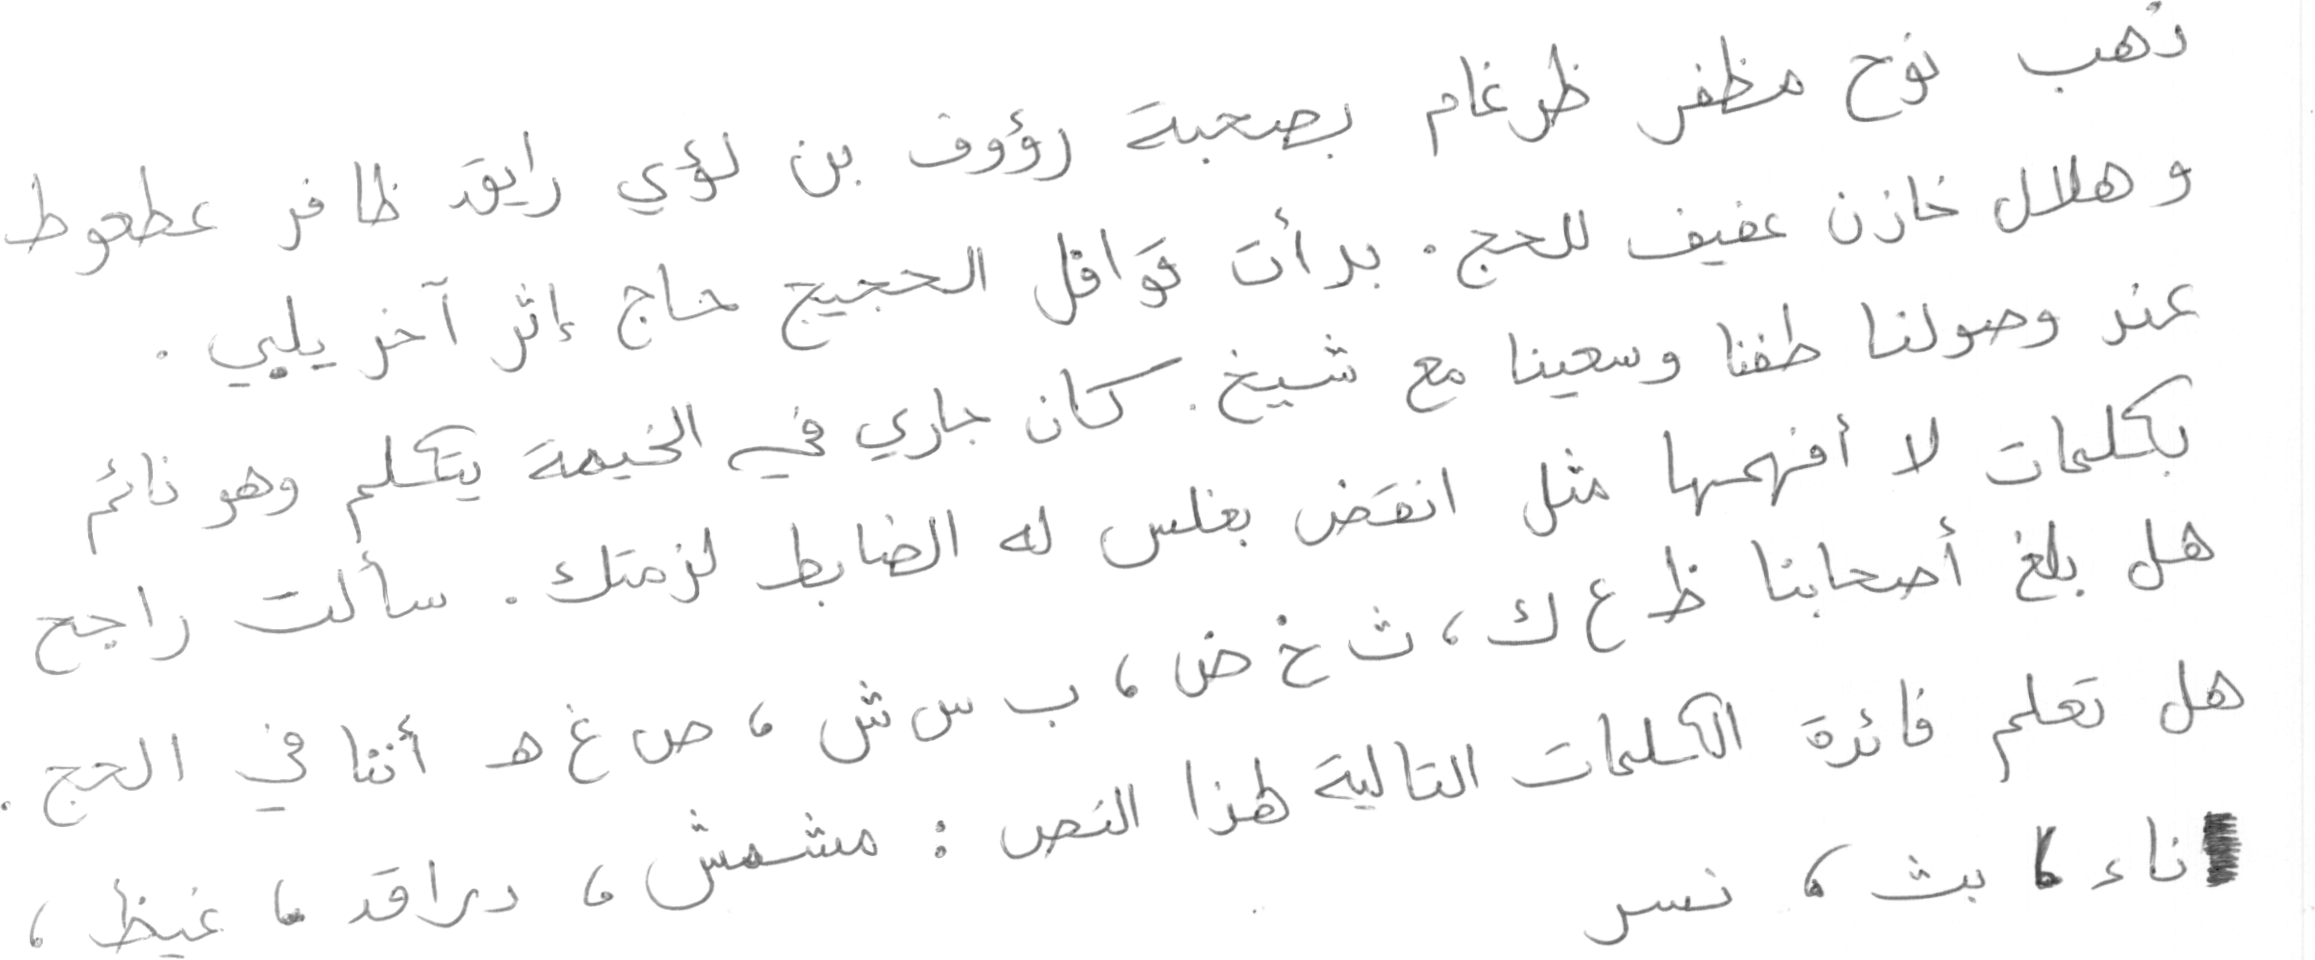 ذهب نوح مظفر ظرغام بصحبة رؤوف بن لؤي رايق ظافر عطعوط
وهلال خازن عفيف للحج. بدأت قوافل الحجيج حاج إثر آخر يلبي.
عند وصولنا طفنا وسعينا مع شيخ. كان جاري في الخيمة يتكلم وهو نائم
بكلمات لا أفهمها مثل انقض بغلس له الضابط لزمتك. سألت راجح
هل بلغ أصحابنا ظ ع ك، ث خ ض، ب س ش، ص غ هـ أننا في الحج.
هل تعلم فائدة الكلمات التالية لهذا النص: مشمش، دراق، غيظ،
ناء، بث، نسر